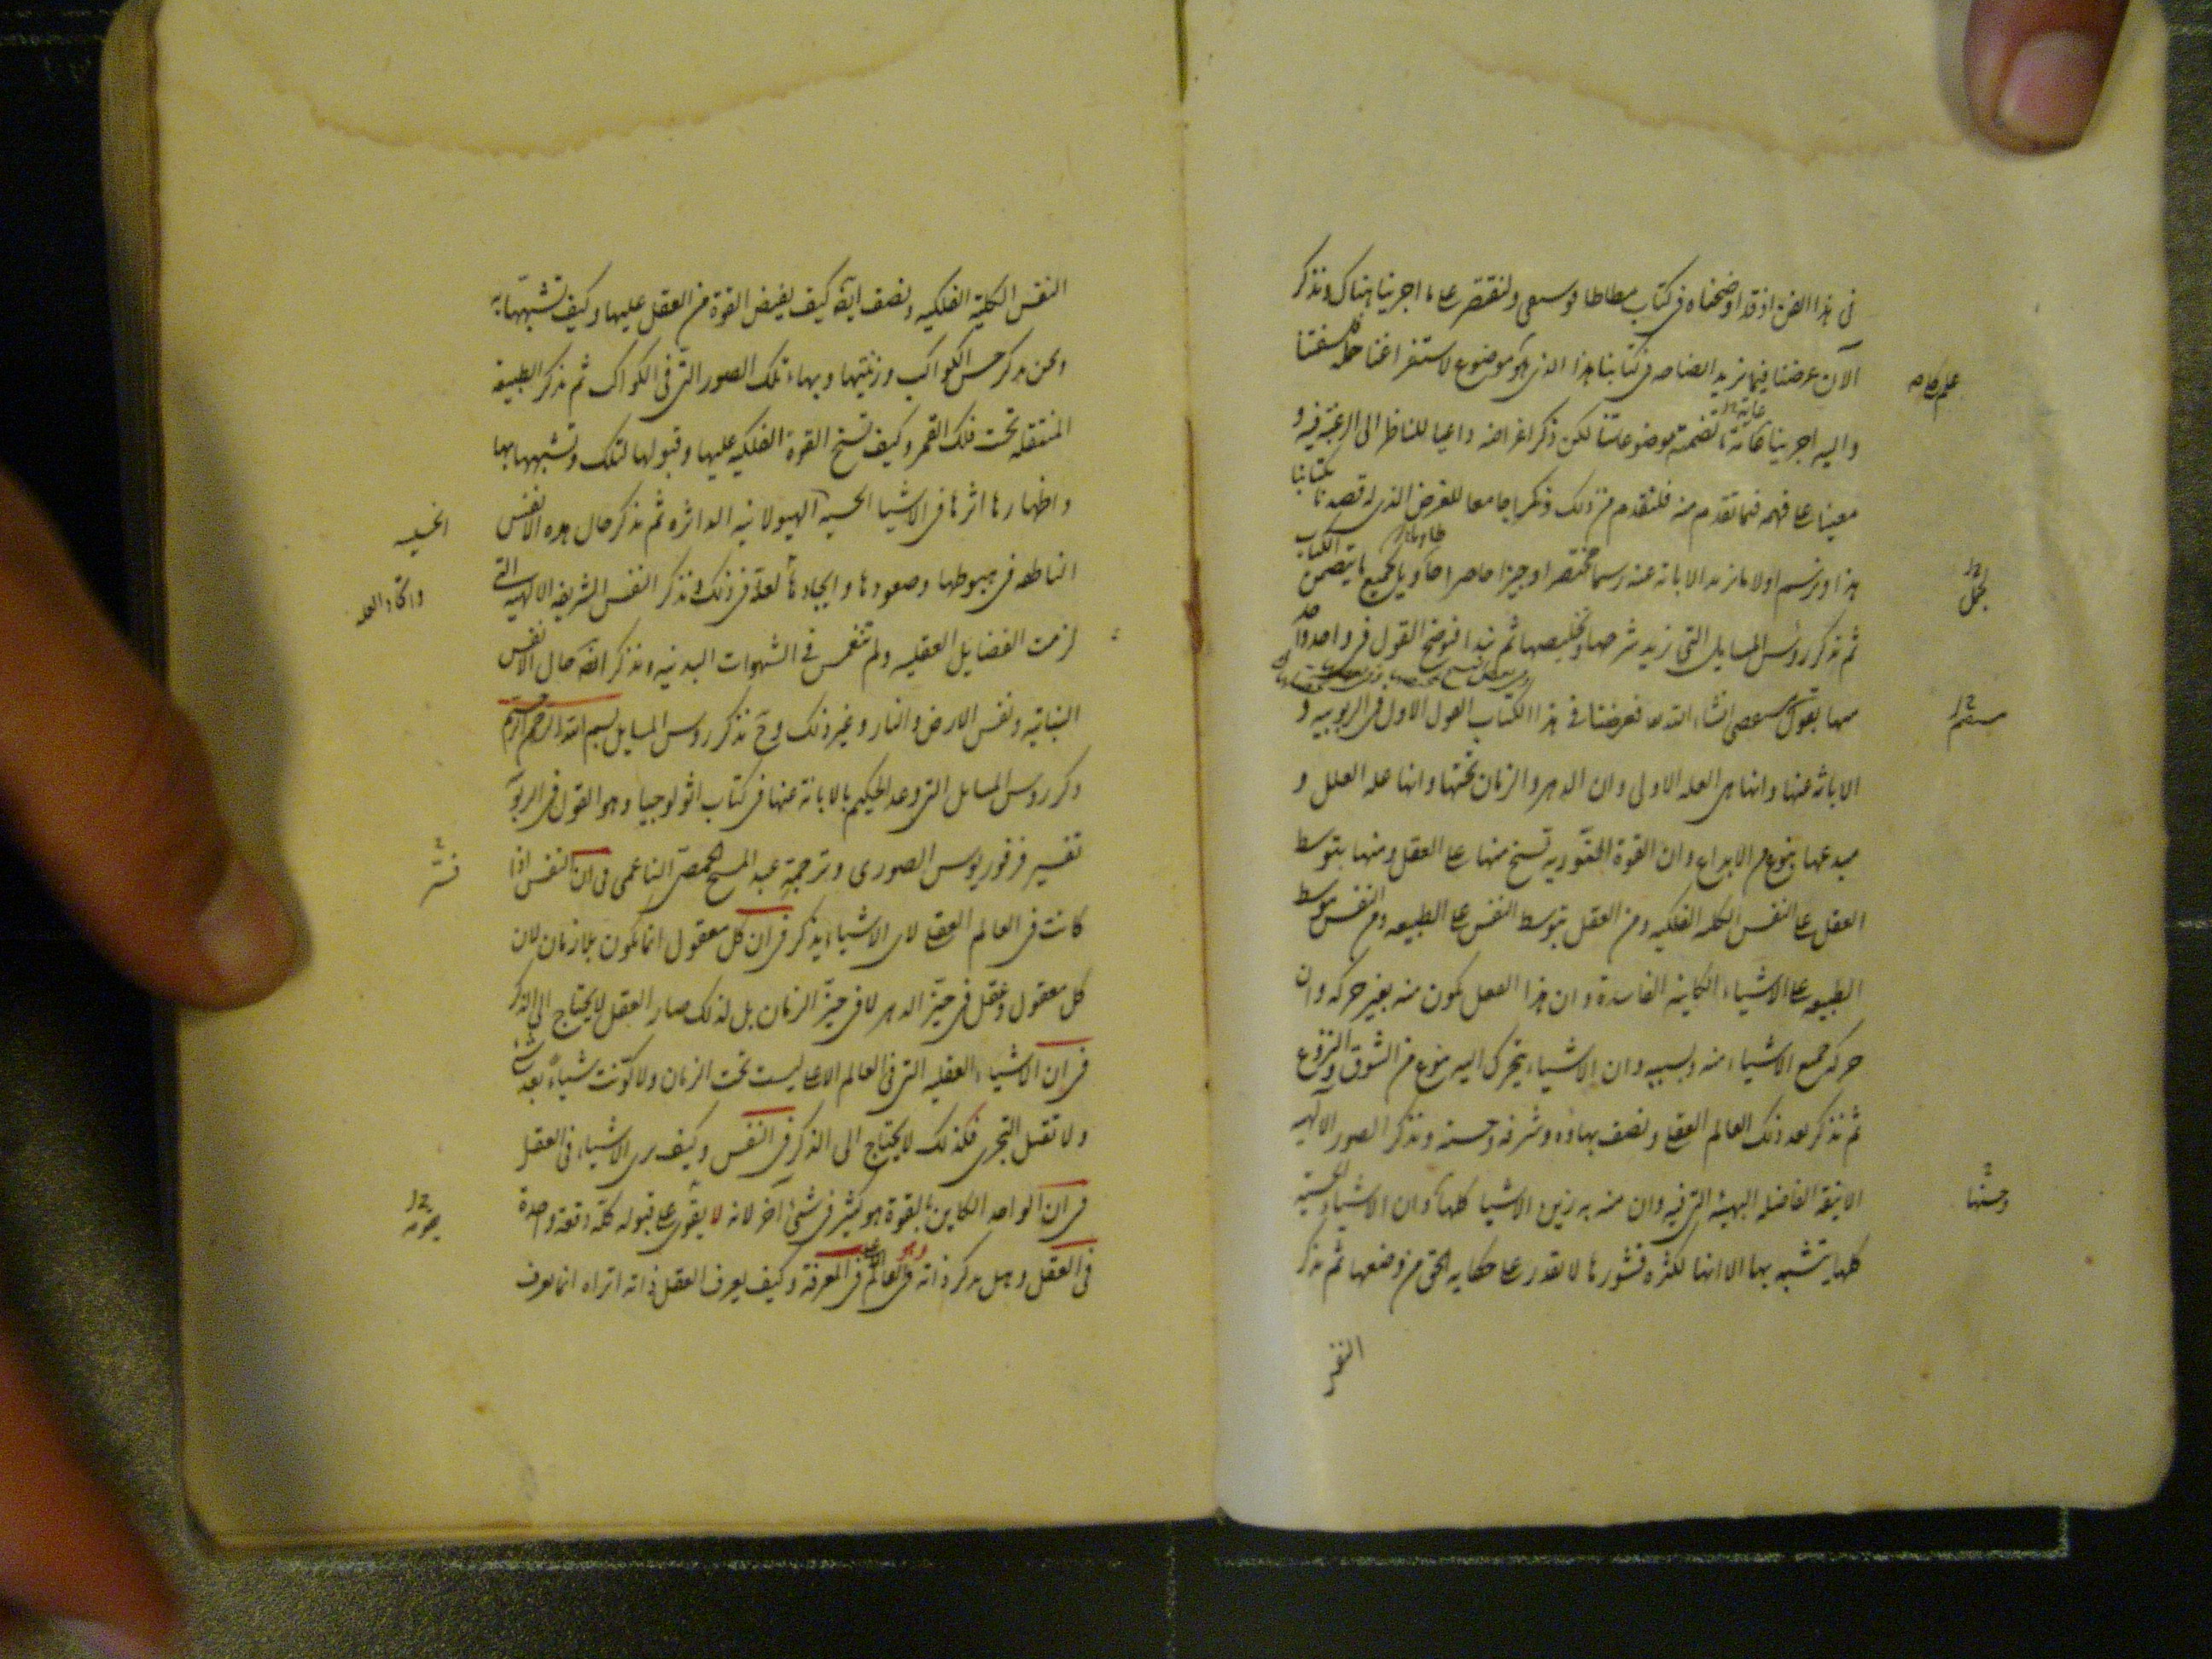 فى هذا الفن اذ قد اوضحناه فى كتاب مطاطافوسيقى ولنقتصر على ما اجرينا هناك ونذكر
الآن غرضنا فيما نريد ايضاحه فى كتابنا هذا الذى هو موضوع لاستفراغنا جملة فلسفتنا
واليه اجرينا غاية ما تضمنته موضوعاتنا لكن ذكر اغراضه داعيا للناظر الى الرغبة فيه و
معينا على فهمه فيما تقدم منه فلنقدم من ذلك ذكرا جامعا للغرض الذى له قصدنا بكتابنا
هذا ونرسم اولا ما نريد الابانة عنه رسما مختصرا وجيزا حاصرا حاويا لجميع ما يتضمن الكتاب
ثم نذكر رؤس المسايل التى نريد شرحها وتلخيصها ثم نبدا فنوضح القول فى واحد واحد
منها بقول مستقصى انشاء الله تعالى فغرضنا فى هذا الكتاب القول الاول فى الربوبية و
الابانة عنها وانها هى العلة الاولى وان الدهر والزمان تحتها وانها علة العلل و
مبدعها بنوع من الابداع وان القوة النورية تسنح منها على العقل ومنها بتوسط
العقل على النفس الكلية الفلكية ومن العقل بتوسط النفس على الطبيعة ومن النفس بتوسط
الطبيعة على الاشياء الكاينة الفاسدة وان هذا الفعل يكون منه بغير حركة وان
حركة جميع الاشياء منه وبسببه وان الاشياء يتحرك اليه بنوع من الشوق والنزوع
ثم نذكر بعد ذلك العالم العقلى ونصف بهاؤه وشرفه وحسنه ونذكر الصور الالهية
الانيقة الفاضلة البهية التى فيه وان منه به زين الاشيا كلها وان الاشياء الحسية
كلها يتشبه بها الا انها لكثرة قشورها لا تقدر على حكاية الحق من وصفها ثم نذكر
وحسنها
النفس
النفس الكلية الفلكية ونصف ايضا كيف يفيض القوة من العقل عليها وكيف تشبهها به
ونحن نذكر حسن الكواكب وزينتها وبهاء تلك الصور التى فى الكواكب ثم نذكر الطبيعة
المنتقلة تحت فلك القمر وكيف تسنح القوة الفلكية عليها وقبولها لتلك وتشبهها بها
واظهارها اثرها فى الاشيا الحسية الهيولانية الداثرة ثم نذكر حال هذه الانفس
الناطقة فى هبوطها وصعودها وايجادها لعلة فى ذلك ونذكر النفس الشريفة الالهية التى
لزمت الفضايل العقلية ولم تنغمس فى الشهوات البدنية ونذكر ايضا حال الانفس
النباتية ونفس الارض والنار وغير ذلك وح نذكر رؤس المسايل بسم الله الرحمن الرحيم
ذكر رؤس المسايل التى وعد الحكيم بالابانة عنها فى كتاب اثولوجيا وهو القول فى الربوبية
تفسير فرفوريوس الصورى وترجمة عبد المسيح الحمصى الناعمى فى ان النفس اذا
فسّر
كانت فى العالم العقلى لاى الاشياء يذكر فى ان كل معقول انما يكون بلا زمان لان
كل معقول وعقل فى حيّز الدهر لا فى حيّز الزمان بل لذلك صار العقل لا يحتاج الى الذكر
فى ان الاشياء العقلية التى فى العالم الاعلى ليست تحت الزمان ولا كوّنت شياءً بعد شئ
ولا تقبل التجزى فكذلك لا يحتاج الى الذكر فى النفس وكيف ترى الاشياء فى العقل
فى ان الواحد الكاين بالقوة هو كثير فى شئ آخر لانه لا يقوى على قبوله كله دفعة واحدة
فى العقل وهل يذكر ذاته وهو فى العالم فى المعرفة وكيف يعرف العقل ذاته اتراه انما يعرف